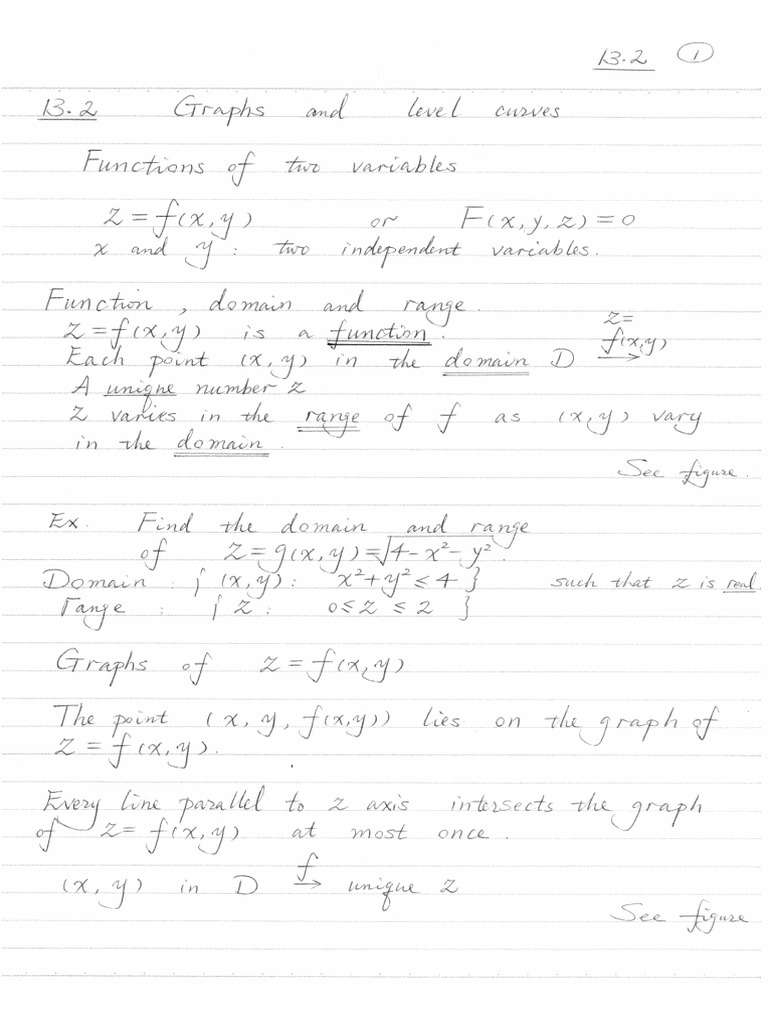 13.2 1
13.2 Graphs and level curves
Functions of two variables
z = f(x, y) or F(x, y, z) = 0
x and y : two independent variables.
Function, domain and range.
z = f(x, y) is a function. z =
Each point (x, y) in the domain D f(x,y) →
A unique number z
z varies in the range of f as (x, y) vary
in the domain.
See figure.
Ex. Find the domain and range
of z = g(x, y) = √4 - x² - y².
Domain : { (x, y) : x² + y² ≤ 4 } such that z is real.
range : { z : 0 ≤ z ≤ 2 }
Graphs of z = f(x, y)
The point (x, y, f(x,y)) lies on the graph of
z = f(x, y).
Every line parallel to z axis intersects the graph
of z = f(x, y) at most once.
(x, y) in D f → unique z
See figure